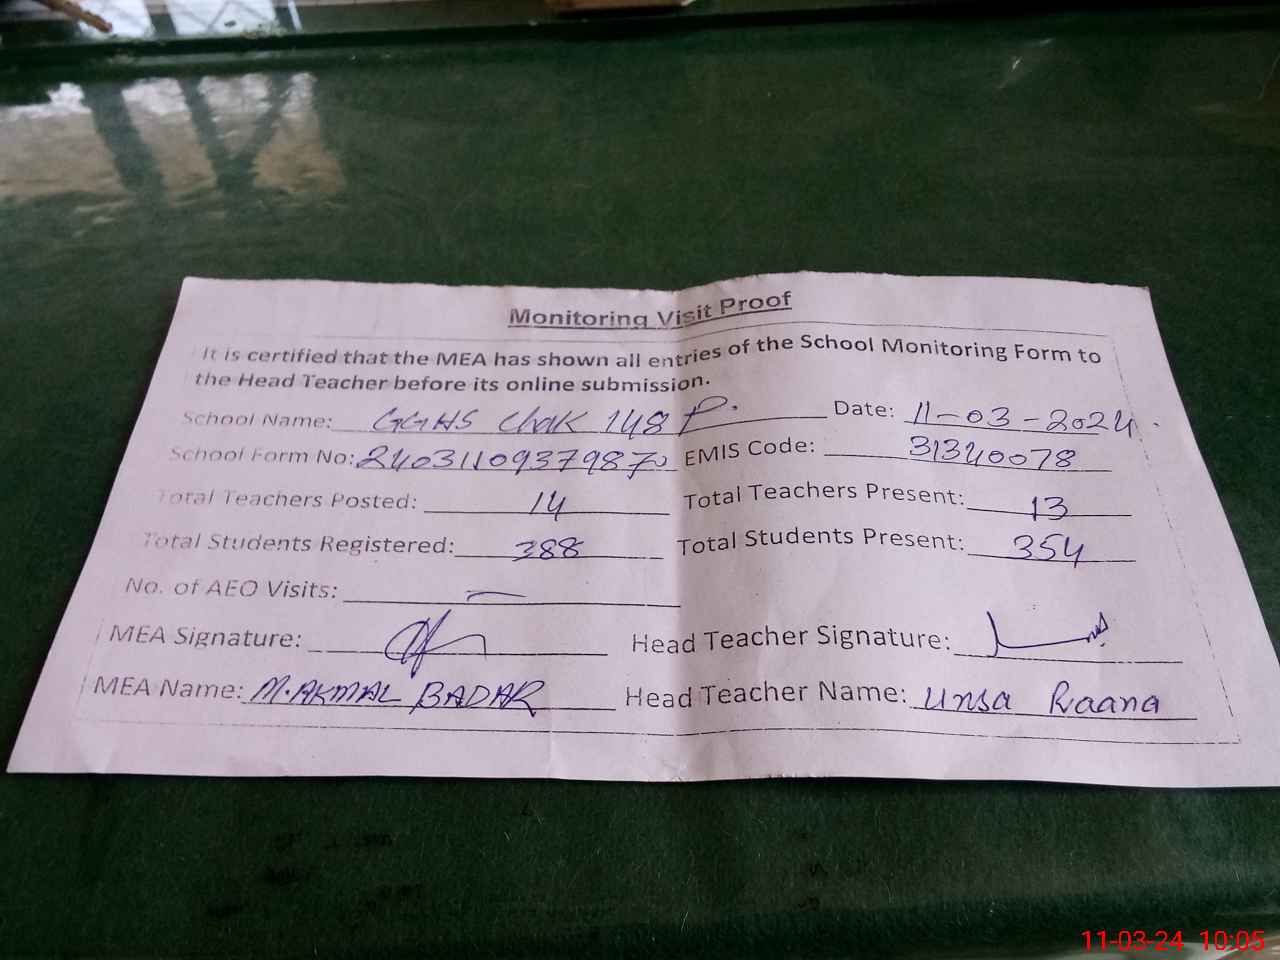 Monitoring Visit Proof
It is certified that the MEA has shown all entries of the School Monitoring Form to
the Head Teacher before its online submission.
School Name: GGHS Chak 148 P. Date: 11-03-2024.
School Form No: 24031109379870 EMIS Code: 31340078
Total Teachers Posted: 14 Total Teachers Present: 13
Total Students Registered: 388 Total Students Present: 354
No. of AEO Visits: —
MEA Signature: Head Teacher Signature:
MEA Name: M. AKMAL BADAR Head Teacher Name: Unsa Raana
11-03-24 10:05